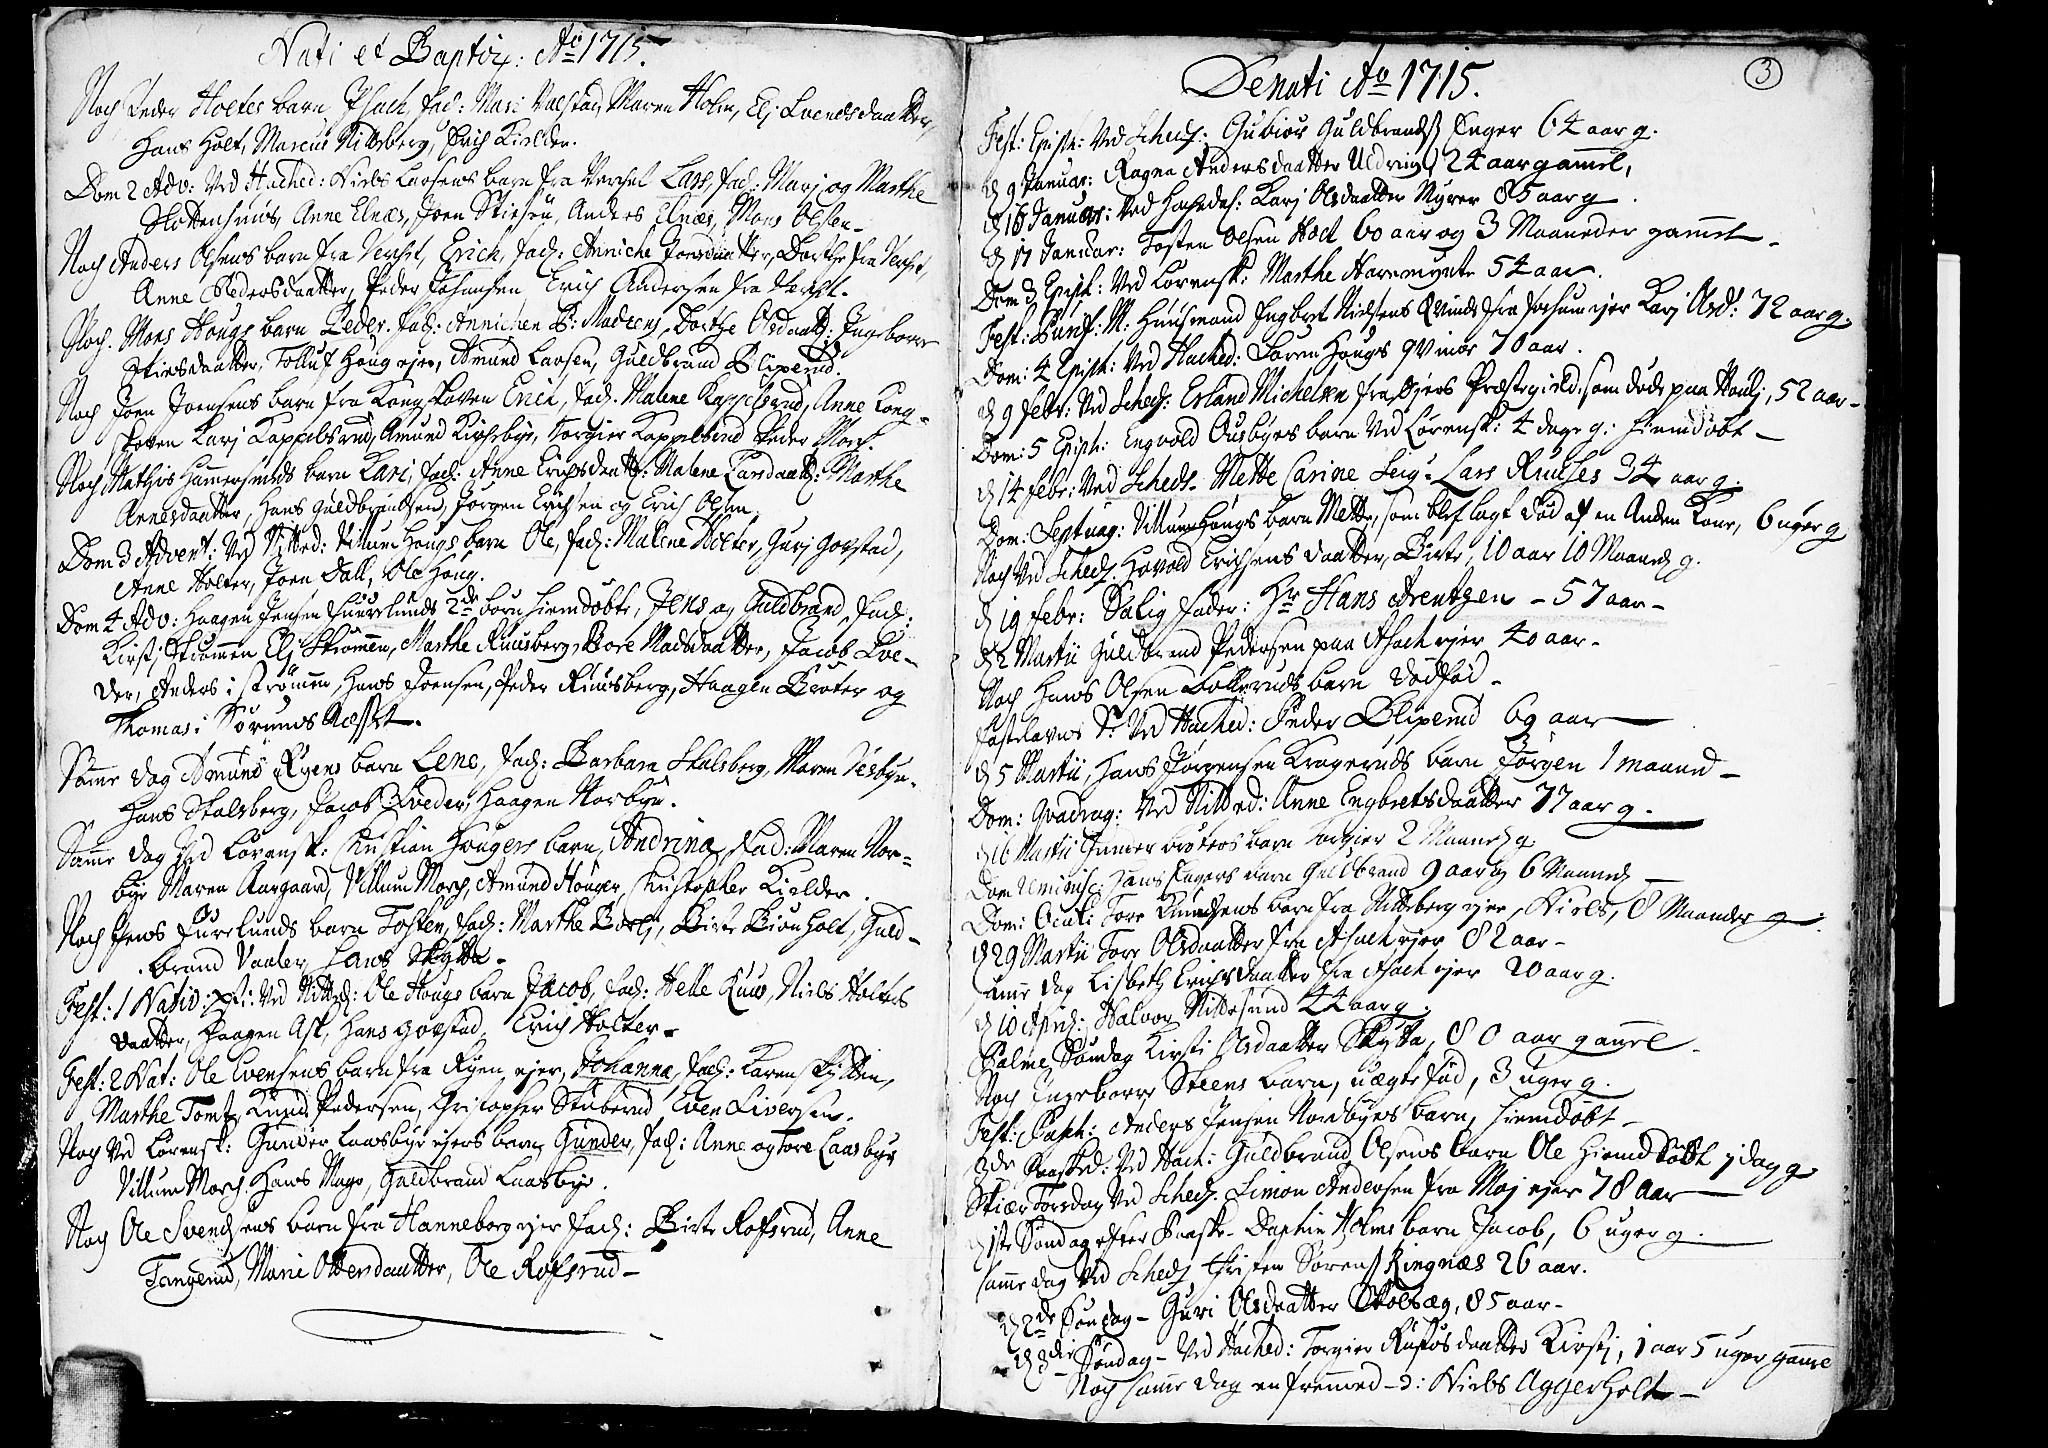 Nati et Baptiz: Ao 1715.
Noch Peder Holtes barn Isach, fad: Mari Valstad, Maren Holm, Elj Svendsdaatter,
Hans Holt, Marcus Nitteberg, Erich Kielden.
Dom 2 Adv: Ved Hached: Niels Larsens barn fra Lars, fad: Marj og Marthe
Anne Elnæs, Joen Anders Elnæs, Mons Olsen
Noch Anders Olsens barn fra Erich, fad: Anniche Joensdaatter, Dorthe fra
Anne Pedersdaatter, Peder Johansen Erich Andersen fra
Noch Mons Hougs barn Peder. fad: Annichen P: Madsens, Dorthe Olsdaatt: Ingeborre
Tolluf Houg ejer, Amund Larsen, Guldbrand Blixerud.
Noch Joen Joensens barn fra Kongskoven Erich, fad: Malene Kappelsrud, Anne Kong-
skoven Karj Kappelsrud, Amund Kirchebye, Torgier Kappelsrud Peder Morch.
Noch Mathis Hammersunds barn Kari, fad: Anne Erichsdaatt: Malene Larsdaatt: Marthe
Annesdaatter, Hans Guldbrandsen, Jørgen Erichsen og Erich Olsen
Dom 3 Advent: Ved Nitted: Villum Hougs barn Ole, fad: Malene Holter, Gurj Govstad,
Anne Holter, Joen Dall, Ole Houg.
Dom 4 Adv: Haagen Jensen Fuurlunds 2de børn hiemdøbte, Jens og Guldbrand, fad:
Kirstj Strømmen Elj Strømmen, Marthe Ruusberg, Bore Madsdaatter, Jacob Loe-
der, Anders i strømmen, Hans Joensen, Peder Ruusberg, Haagen Brøter og
Thomas i Sørums
Samme dag Amund Ryens barn Lene, fad: Barbara Skalsberg, Maren
Hans Skalsberg, Jacob Haagen Norbye.
Samme dag Ved Lørensk: Christian Hougers barn, Andrina, fad: Maren Nor-
bye Maren Aargaard, Villum Morch, Amund Houger, Christopher Kielder.
Noch Jens Furelunds barn Tosten, fad: Marthe Birte Bionholt, Guld-
brand Vaaler, Lars Skytta.
Fest: 1 Nativ: xti: Ved Nitted: Ole Hougs barn Jacob, fad: Helle Ruus, Niels Holtes
daatter, Haagen Ask, Hans Govstad, Erich Holter.
Fest: 2 Nat: Ole Evensens barn fra Ryen ejer, Johanna, fad: Karen Skytten,
Marthe Tomt, Knud Pedersen, Christopher Stuberud, Even Siversen.
Noch Ved Lørensk: Gunder Laasbye ejers barn Gunder, fad: Anne og Tore Laasbye
Villum Morch. Hans Mago, Guldbrand Laasbye.
Noch Ole Svendsens barn fra Hanneborg ejer fad: Birte Rofsrud, Anne
Tangerud, Marie Ottersdaatter, Ole Rofsrud
3
Denati Ao 1715.
Fest: Epiph: Ved Schedz: Gubiør Guldbrandsd Enger 64 aar g.
d 9 Januar: Ragna Andersdaatter Uldrim 24 aar gammel,
d 16 Januar: Ved Karj Olsdaatter Myrer 85 aar g.
d 17 Januar: Tosten Olsen Hoel 60 aar og 3 Maaneder gammel
Dom 3 Epiph: Ved Lørensk: Marthe Haremynte 54 aar.
Fest: Purif: M: Huusmand Engbret Nielsens Qvinde fra ejer Karj Olsd: 72 aar g.
Dom: 4 Epiph: Ved Hached: Søren Hougs qvinde 70 aar.
d 9 febr: Ved Schedz: Erland Michelsen fra Præstegield, som døde paa 52 aar
Dom: 5 Epiph: Engvold Ousbyes barn Ved Lørensk: 4 dage g: hiemdøbt
d 14 febr: Ved Schedz. Mette Carine Seigr Lars Ruuses 34 aar g.
Dom: Septuag: Villum Hougs barn Mette, som blef lagt død af en Anden Kone, 6 uger g
Noch Ved Schedz. Hovold Erichsens daatter, Birte, 10 aar 10 Maaned g.
d 19 febr: Salig fader: Hr Hans Arentzen - 57 aar
d 2 Martii Guldbrand Pedersen paa Asach ejer 40 aar
Noch Hans Olsen Bollerud barn dødfød
fastelavns S: Ved Hached: Peder Blixerud 69 aar
d 5 Martii, Hans Jørgensen Kragerud barn Jørgen 1 maaned
Dom: Qvadrag: Ved Nitted: Anne Engbretsdaatter 77 aar g.
d 16 Martii Gunder Brøters barn Torgier 2 Maaned g
Dom Reminisc: Hans Engers barn Guldbrand 9 aar og 6 Maaned
Dom: Oculi Tore Knudsens barn fra Nitteberg ejer, Niels, 8 Maaneder g.
d 29 Martii Tore Olsdaatter fra Asach ejer 82 aar
samme dag Lisbeth Erichsdaatter fra Asach ejer 20 aar g.
d 10 April: Halvor Nittesund 44 aar g.
Palme Søndag Kirsti Olsdaatter Skytta, 80 aar gammel
Noch Ingeborre Steens barn, uægte fød, 3 uger g.
Fest: Pasch: Anders Jensen Nordbyes barn, hiemdøbt
3de Paasked: Ved Hach: Guldbrand Olsens barn Ole hiemdøbt 7 dag g
Skiær Torsdag Ved Schedz. Simon Andersen fra Moj ejer 78 aar
1ste Søndag efter Paaske. Daphin Holms barn Jacob, 6 uger g.
samme dag Ved Schedz Christen Sørens Ringnæs 26 aar.
d 2de Søndag - Guri Olsdaatter Skolsæg, 85 aar
d 3die Søndag - Ved Hached: Torgier daatter Kirstj, 1 aar 5 uger gammel
Noch samme dag en fremmed Niels Aggerholt